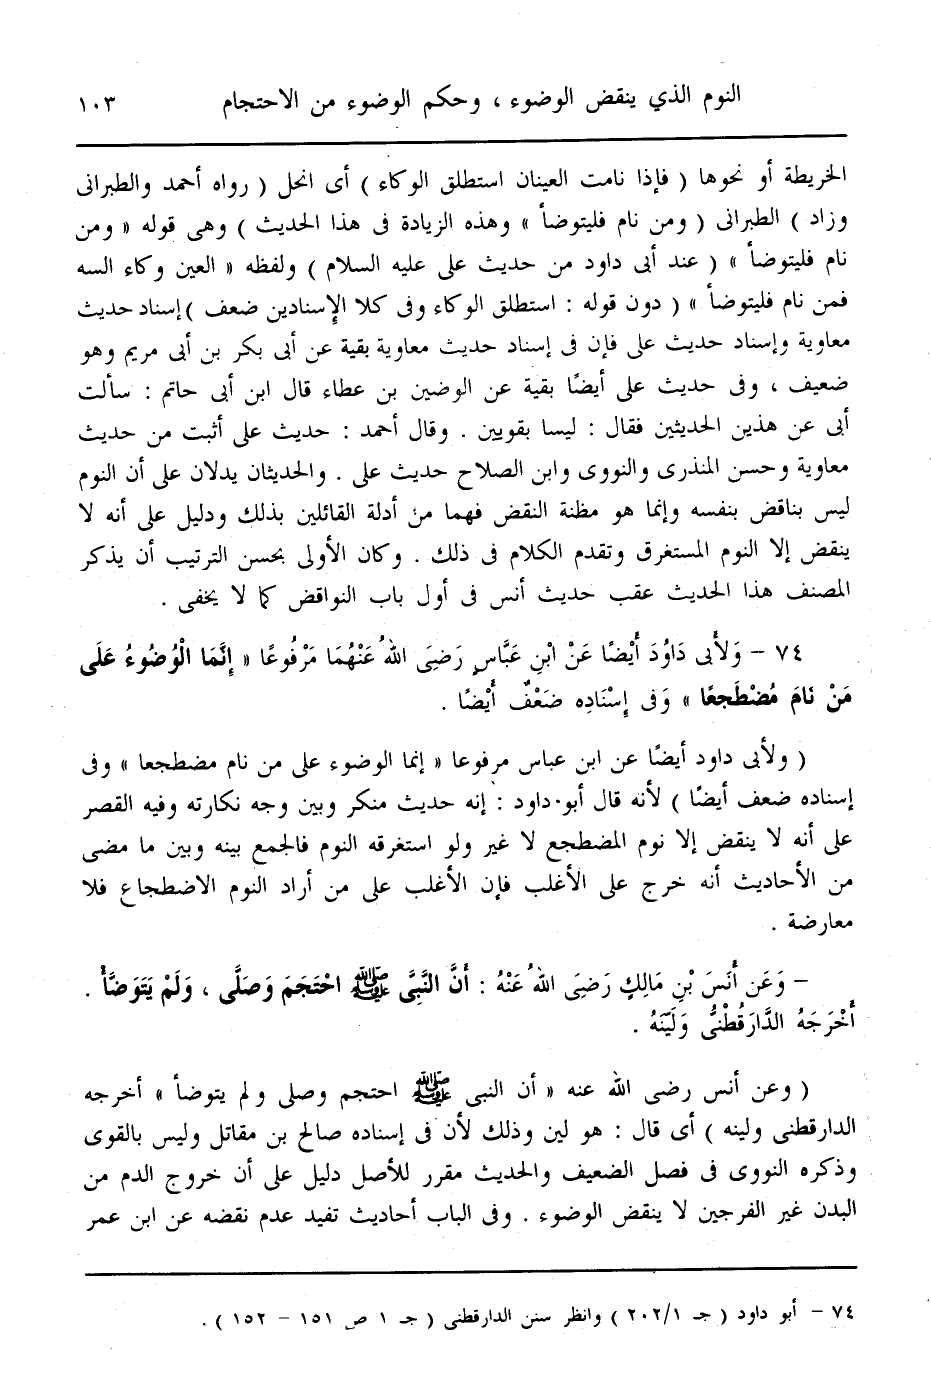 النوم الذي ينقض الوضوء ، وحكم الوضوء من الاحتجام ١٠٣
الخريطة أو نحوها ( فإذا نامت العينان استطلق الوكاء ) أى انحل ( رواه أحمد والطبرانى
وزاد ) الطبرانى ( ومن نام فليتوضأ » وهذه الزيادة فى هذا الحديث ) وهى قوله « ومن
نام فليتوضأ » ( عند أبى داود من حديث على عليه السلام ) ولفظه « العين وكاء السه
فمن نام فليتوضأ » ( دون قوله : استطلق الوكاء وفى كلا الإسنادين ضعف ) إسناد حديث
معاوية وإسناد حديث على فإن فى إسناد حديث معاوية بقية عن أبى بكر بن أبى مريم وهو
ضعيف ، وفى حديث على أيضًا بقية عن الوضين بن عطاء قال ابن أبى حاتم : سألت
أبى عن هذين الحديثين فقال : ليسا بقويين . وقال أحمد : حديث على أثبت من حديث
معاوية وحسن المنذرى والنووى وابن الصلاح حديث على . والحديثان يدلان على أن النوم
ليس بناقض بنفسه وإنما هو مظنة النقض فهما من أدلة القائلين بذلك ودليل على أنه لا
ينقض إلا النوم المستغرق وتقدم الكلام فى ذلك . وكان الأولى بحسن الترتيب أن يذكر
المصنف هذا الحديث عقب حديث أنس فى أول باب النواقض كما لا يخفى .
٧٤ – وَلأبى دَاوُدَ أَيْضًا عَنْ ابْنِ عَبَّاسٍ رَضِىَ اللهُ عَنْهُمَا مَرْفُوعًا « إِنَّمَا الْوُضُوءُ عَلَى
مَنْ نَامَ مُضْطَجعًا » وَفى إسْنَادِه ضَعْفٌ أَيْضًا .
( ولأبى داود أيضًا عن ابن عباس مرفوعا « إنما الوضوء على من نام مضطجعا » وفى
إسناده ضعف أيضًا ) لأنه قال أبو داود : إنه حديث منكر وبين وجه نكارته وفيه القصر
على أنه لا ينقض إلا نوم المضطجع لا غير ولو استغرقه النوم فالجمع بينه وبين ما مضى
من الأحاديث أنه خرج على الأغلب فإن الأغلب على من أراد النوم الاضطجاع فلا
معارضة .
– وَعَن أَنَسَ بْنِ مَالِكٍ رَضِىَ اللهُ عَنْهُ : أَنَّ النَّبىَّ ﷺ احْتَجَمَ وَصَلَّى ، وَلَمْ يَتَوَضَّأْ .
أَخْرَجَهُ الدَّارَقُطْنىُّ وَلَيَّنَهُ .
( وعن أنس رضى الله عنه « أن النبى ﷺ احتجم وصلى ولم يتوضأ » أخرجه
الدارقطنى ولينه ) أى قال : هو لين وذلك لأن فى إسناده صالح بن مقاتل وليس بالقوى
وذكره النووى فى فصل الضعيف والحديث مقرر للأصل دليل على أن خروج الدم من
البدن غير الفرجين لا ينقض الوضوء . وفى الباب أحاديث تفيد عدم نقضه عن ابن عمر
٧٤ – أبو داود ( جـ ٢٠٢/١ ) وانظر سنن الدارقطنى ( جـ ١ ص ١٥١ – ١٥٢ ) .